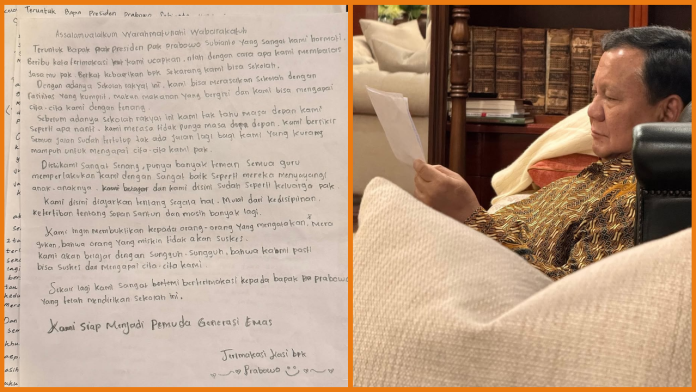 Teruntuk Bapa Presiden Prabowo
Assalamualaikum Warahmatullahi Wabarakatuh
Teruntuk Bapak Presiden pak prabowo Subianto Yang sangat kami hormati,
Beribu kata terimakasi kami ucapkan, olah dengan cara apa kami membalas
Jasa mu pak Berkat kebaikan bpk sekarang kami bisa sekolah.
Dengan adanya sekolah rakyat ini, kami bisa merasakan sekolah dengan
Fasilitas Yang kumplit, makan makanan Yang bergizi dan kami bisa mengapai
cita-cita kami dengan tenang.
Sebelum adanya sekolah rakyat ini kami tak tahu masa depan kami
seperti apa nanti. kami merasa tidak punya masa depan. kami berfikir
semua jalan sudah tertutup tak ada jalan lagi bagi kami Yang kurang
mampuh untuk mengapai cita-cita kami pak.
Disikami Sangat Senang, punya banyak teman semua guru
memperlakukan kami dengan sangat baik seperti mereka menyayangi
anak-anaknya. dan kami disini sudah seperti keluarga pak.
kami disini diajarkan tentang segala hal. Mulai dari kedisiplinan,
ketertiban tentang sopan santun dan masih banyak lagi.
kami ingin membuktikan kepada orang-orang Yang mengatakan, mera
gukan, bahwa orang Yang miskin tidak akan suskes.
kami akan brajar dengan sungguh-sungguh, bahwa kami pasti
bisa suskes dan mengapai cita-cita kami.
Sekali lagi kami sangat berterimakasi kepada bapak prabowo
Yang telah mendirikan sekolah ini.
Kami Siap Menjadi Pemuda Generasi Emas
Terimakasi kasi bpk
Prabowo